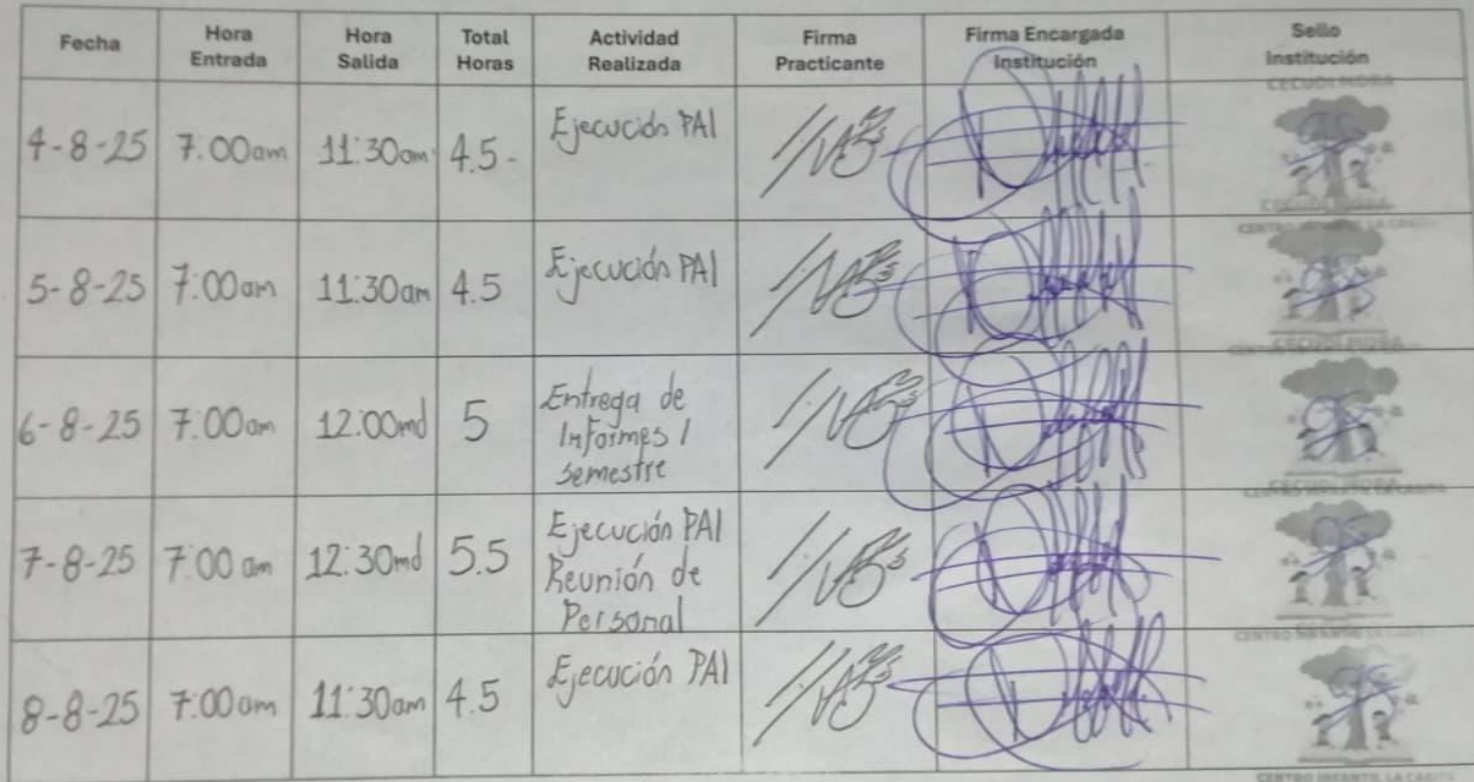 Fecha
Hora Entrada
Hora Salida
Total Horas
Actividad Realizada
Firma Practicante
Firma Encargada Institución
Sello Institución
4-8-25 7:00am 11:30am 4.5- Ejecución PAI
CECUDI MORA
CECUDI MORA
5-8-25 7:00am 11:30am 4.5 Ejecución PAI
CECUDI MORA
6-8-25 7:00am 12:00md 5 Entrega de
Informes I
semestre
CECUDI MORA
7-8-25 7:00am 12:30md 5.5 Ejecución PAI
Reunión de
Personal
8-8-25 7:00am 11:30am 4.5 Ejecución PAI
CENTRO INFANTIL LA CASITA